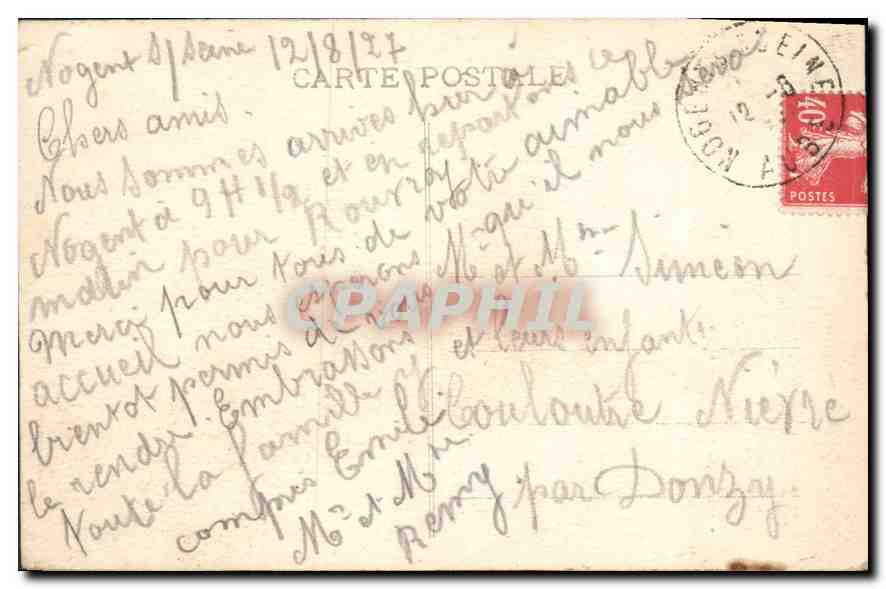 Nogent s/Seine 12/8/27
CARTE POSTALE
Chers amis.
Nous sommes arrivés hier à
Nogent à 9 H 1/2 et en repartons ce
matin pour Rouvray
Merci pour tous de votre aimable
accueil nous espérons qu'il nous sera
bientot permis de vous
le rendre. Embrassons
toute la famille y
compris Emile
Mr et Mme
Remy
Mr et Mme Simeon
et leurs enfants.
Couloutre Nièvre
par Donzy.
NOGENT SEINE
12
AUBE
40
POSTES
CPAPHIL